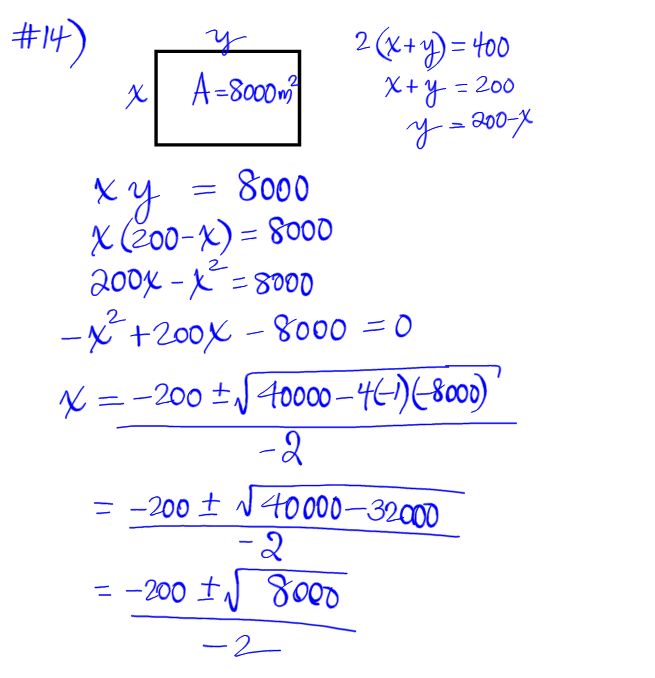 #14)
y
x
A=8000m²
2(x+y)=400
x+y=200
y=200-x
xy = 8000
x(200-x)=8000
200x-x²=8000
-x²+200x-8000=0
x = -200±√40000-4(-1)(-8000)
-2
= -200 ± √40000-32000
-2
= -200 ±√8000
-2